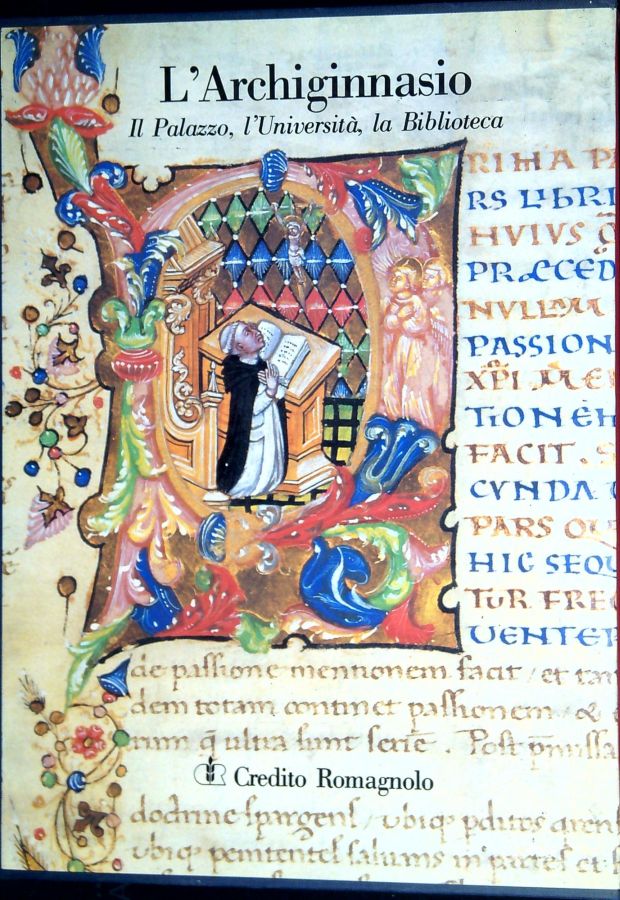 L'Archiginnasio
Il Palazzo, l'Università, la Biblioteca
RIMA P
RS LIBRI
HUIUS
PRÆCED
NULLAM
PASSION
XPI MEN
TIONEM
FACIT. S
CUNDA
PARS
HIC SEQU
TUR FRE
VENTER
de passione mentionem facit / et tan
dem totam continet passionem &
rum q̄ ultra sunt serie. Post
Credito Romagnolo
doctrine spargens / ubiq
ubiq penitentes saluans in partes et